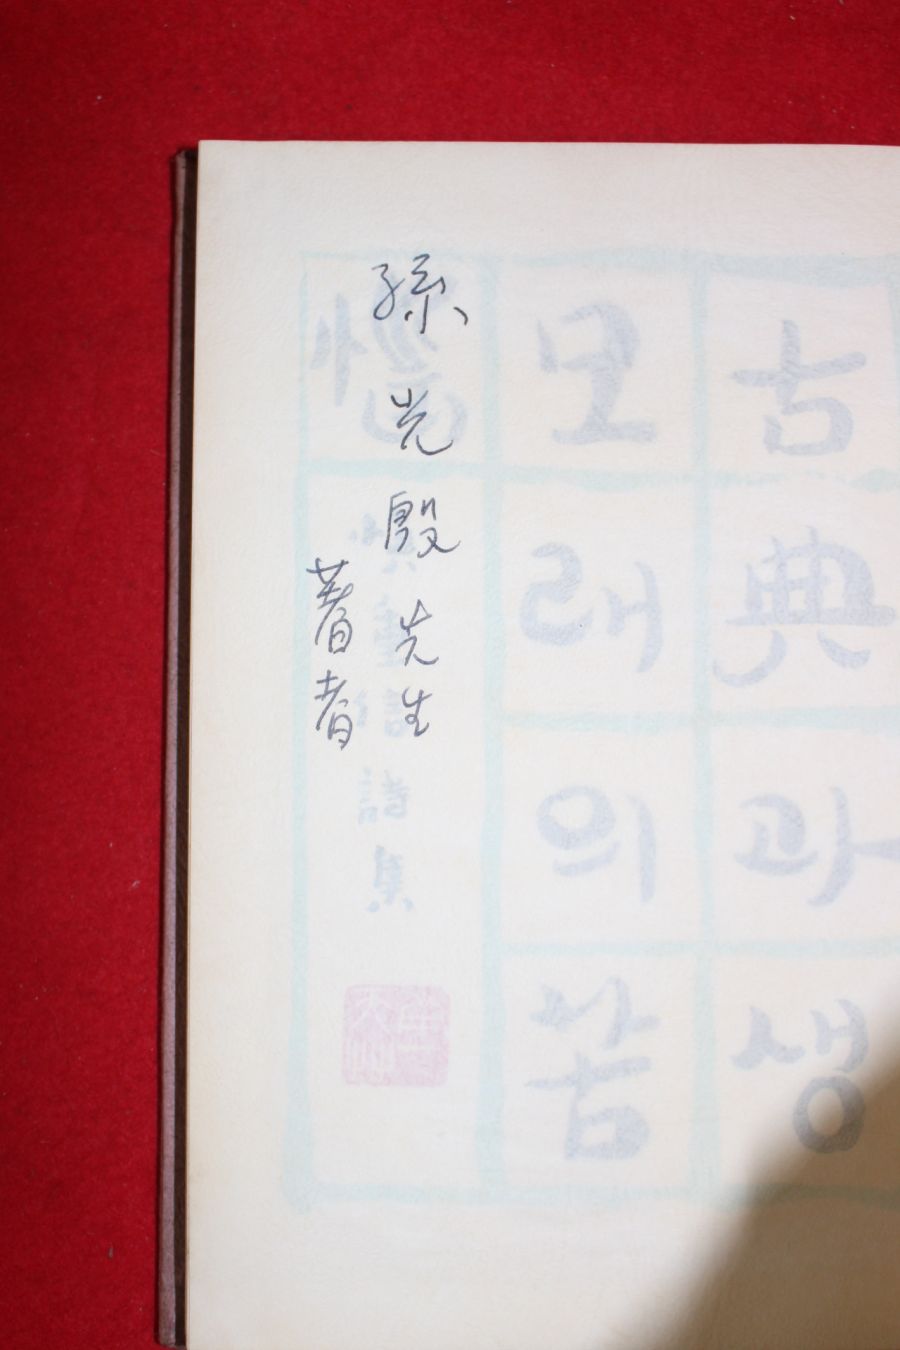 古典과생
모래의苦
惱
詩集
孫光殷先生
著者